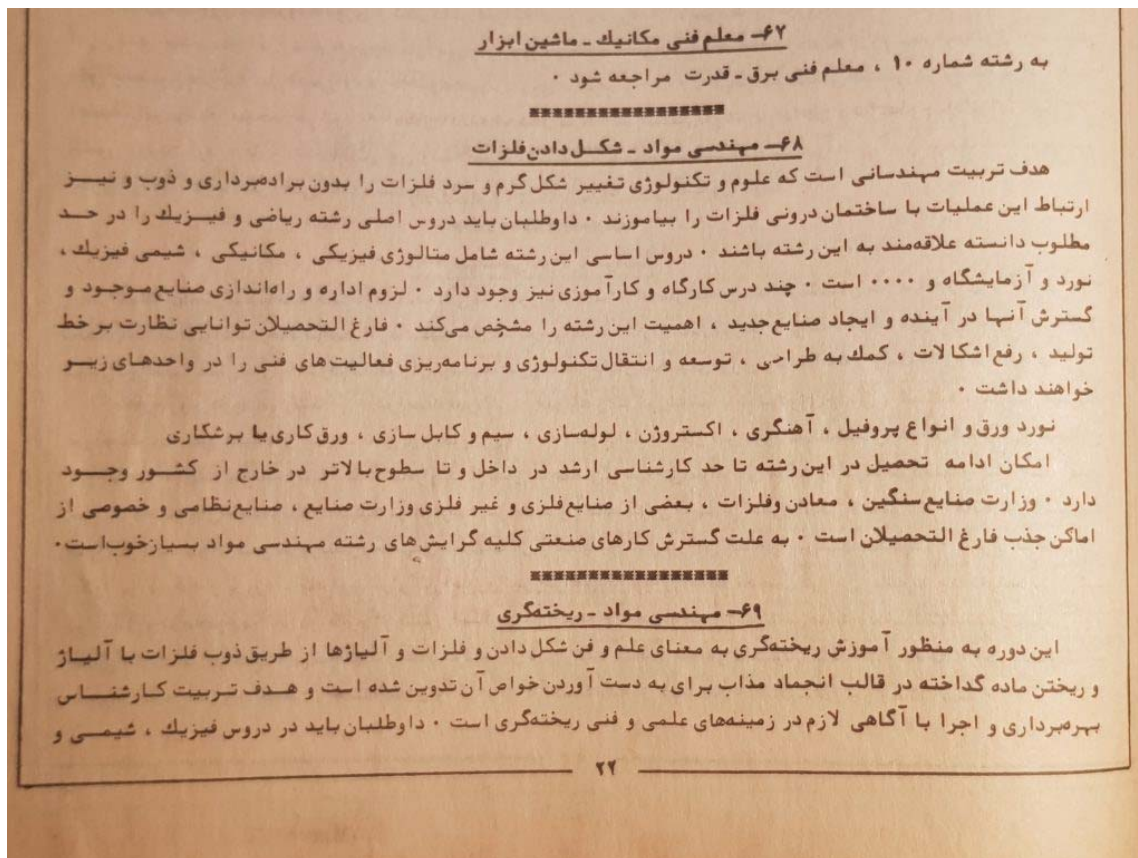 ۶۷- معلم فنی مکانیك ـ ماشین ابزار
به رشته شماره ۱۰ ، معلم فنی برق ـ قدرت مراجعه شود ۰
*****************
۶۸- مهندسی مواد ـ شکل دادن فلزات
هدف تربیت مهندسانی است که علوم و تکنولوژی تغییر شکل گرم و سرد فلزات را بدون براده‌برداری و ذوب و نیز
ارتباط این عملیات با ساختمان درونی فلزات را بیاموزند ۰ داوطلبان باید دروس اصلی رشته ریاضی و فیزیك را در حد
مطلوب دانسته علاقه‌مند به این رشته باشند ۰ دروس اساسی این رشته شامل متالوژی فیزیکی ، مکانیکی ، شیمی فیزیك ،
نورد و آزمایشگاه و ۰۰۰۰ است ۰ چند درس کارگاه و کارآموزی نیز وجود دارد ۰ لزوم اداره و راه‌اندازی صنایع موجود و
گسترش آنها در آینده و ایجاد صنایع جدید ، اهمیت این رشته را مشخص می‌کند ۰ فارغ التحصیلان توانایی نظارت بر خط
تولید ، رفع اشکالات ، کمك به طراحی ، توسعه و انتقال تکنولوژی و برنامه‌ریزی فعالیت‌های فنی را در واحدهای زیر
خواهند داشت ۰
نورد ورق و انواع پروفیل ، آهنگری ، اکستروژن ، لوله‌سازی ، سیم و کابل سازی ، ورق کاری یا برشکاری
امکان ادامه تحصیل در این رشته تا حد کارشناسی ارشد در داخل و تا سطوح بالاتر در خارج از کشور وجود
دارد ۰ وزارت صنایع سنگین ، معادن وفلزات ، بعضی از صنایع فلزی و غیر فلزی وزارت صنایع ، صنایع نظامی و خصوصی از
اماکن جذب فارغ التحصیلان است ۰ به علت گسترش کارهای صنعتی کلیه گرایش‌های رشته مهندسی مواد بسیار خوب است۰
*****************
۶۹- مهندسی مواد ـ ریخته‌گری
این دوره به منظور آموزش ریخته‌گری به معنای علم و فن شکل دادن و فلزات و آلیاژها از طریق ذوب فلزات با آلیاژ
و ریختن ماده گداخته در قالب انجماد مذاب برای به دست آوردن خواص آن تدوین شده است و هدف تربیت کارشناس
بهره‌برداری و اجرا با آگاهی لازم در زمینه‌های علمی و فنی ریخته‌گری است ۰ داوطلبان باید در دروس فیزیك ، شیمی و
۲۲